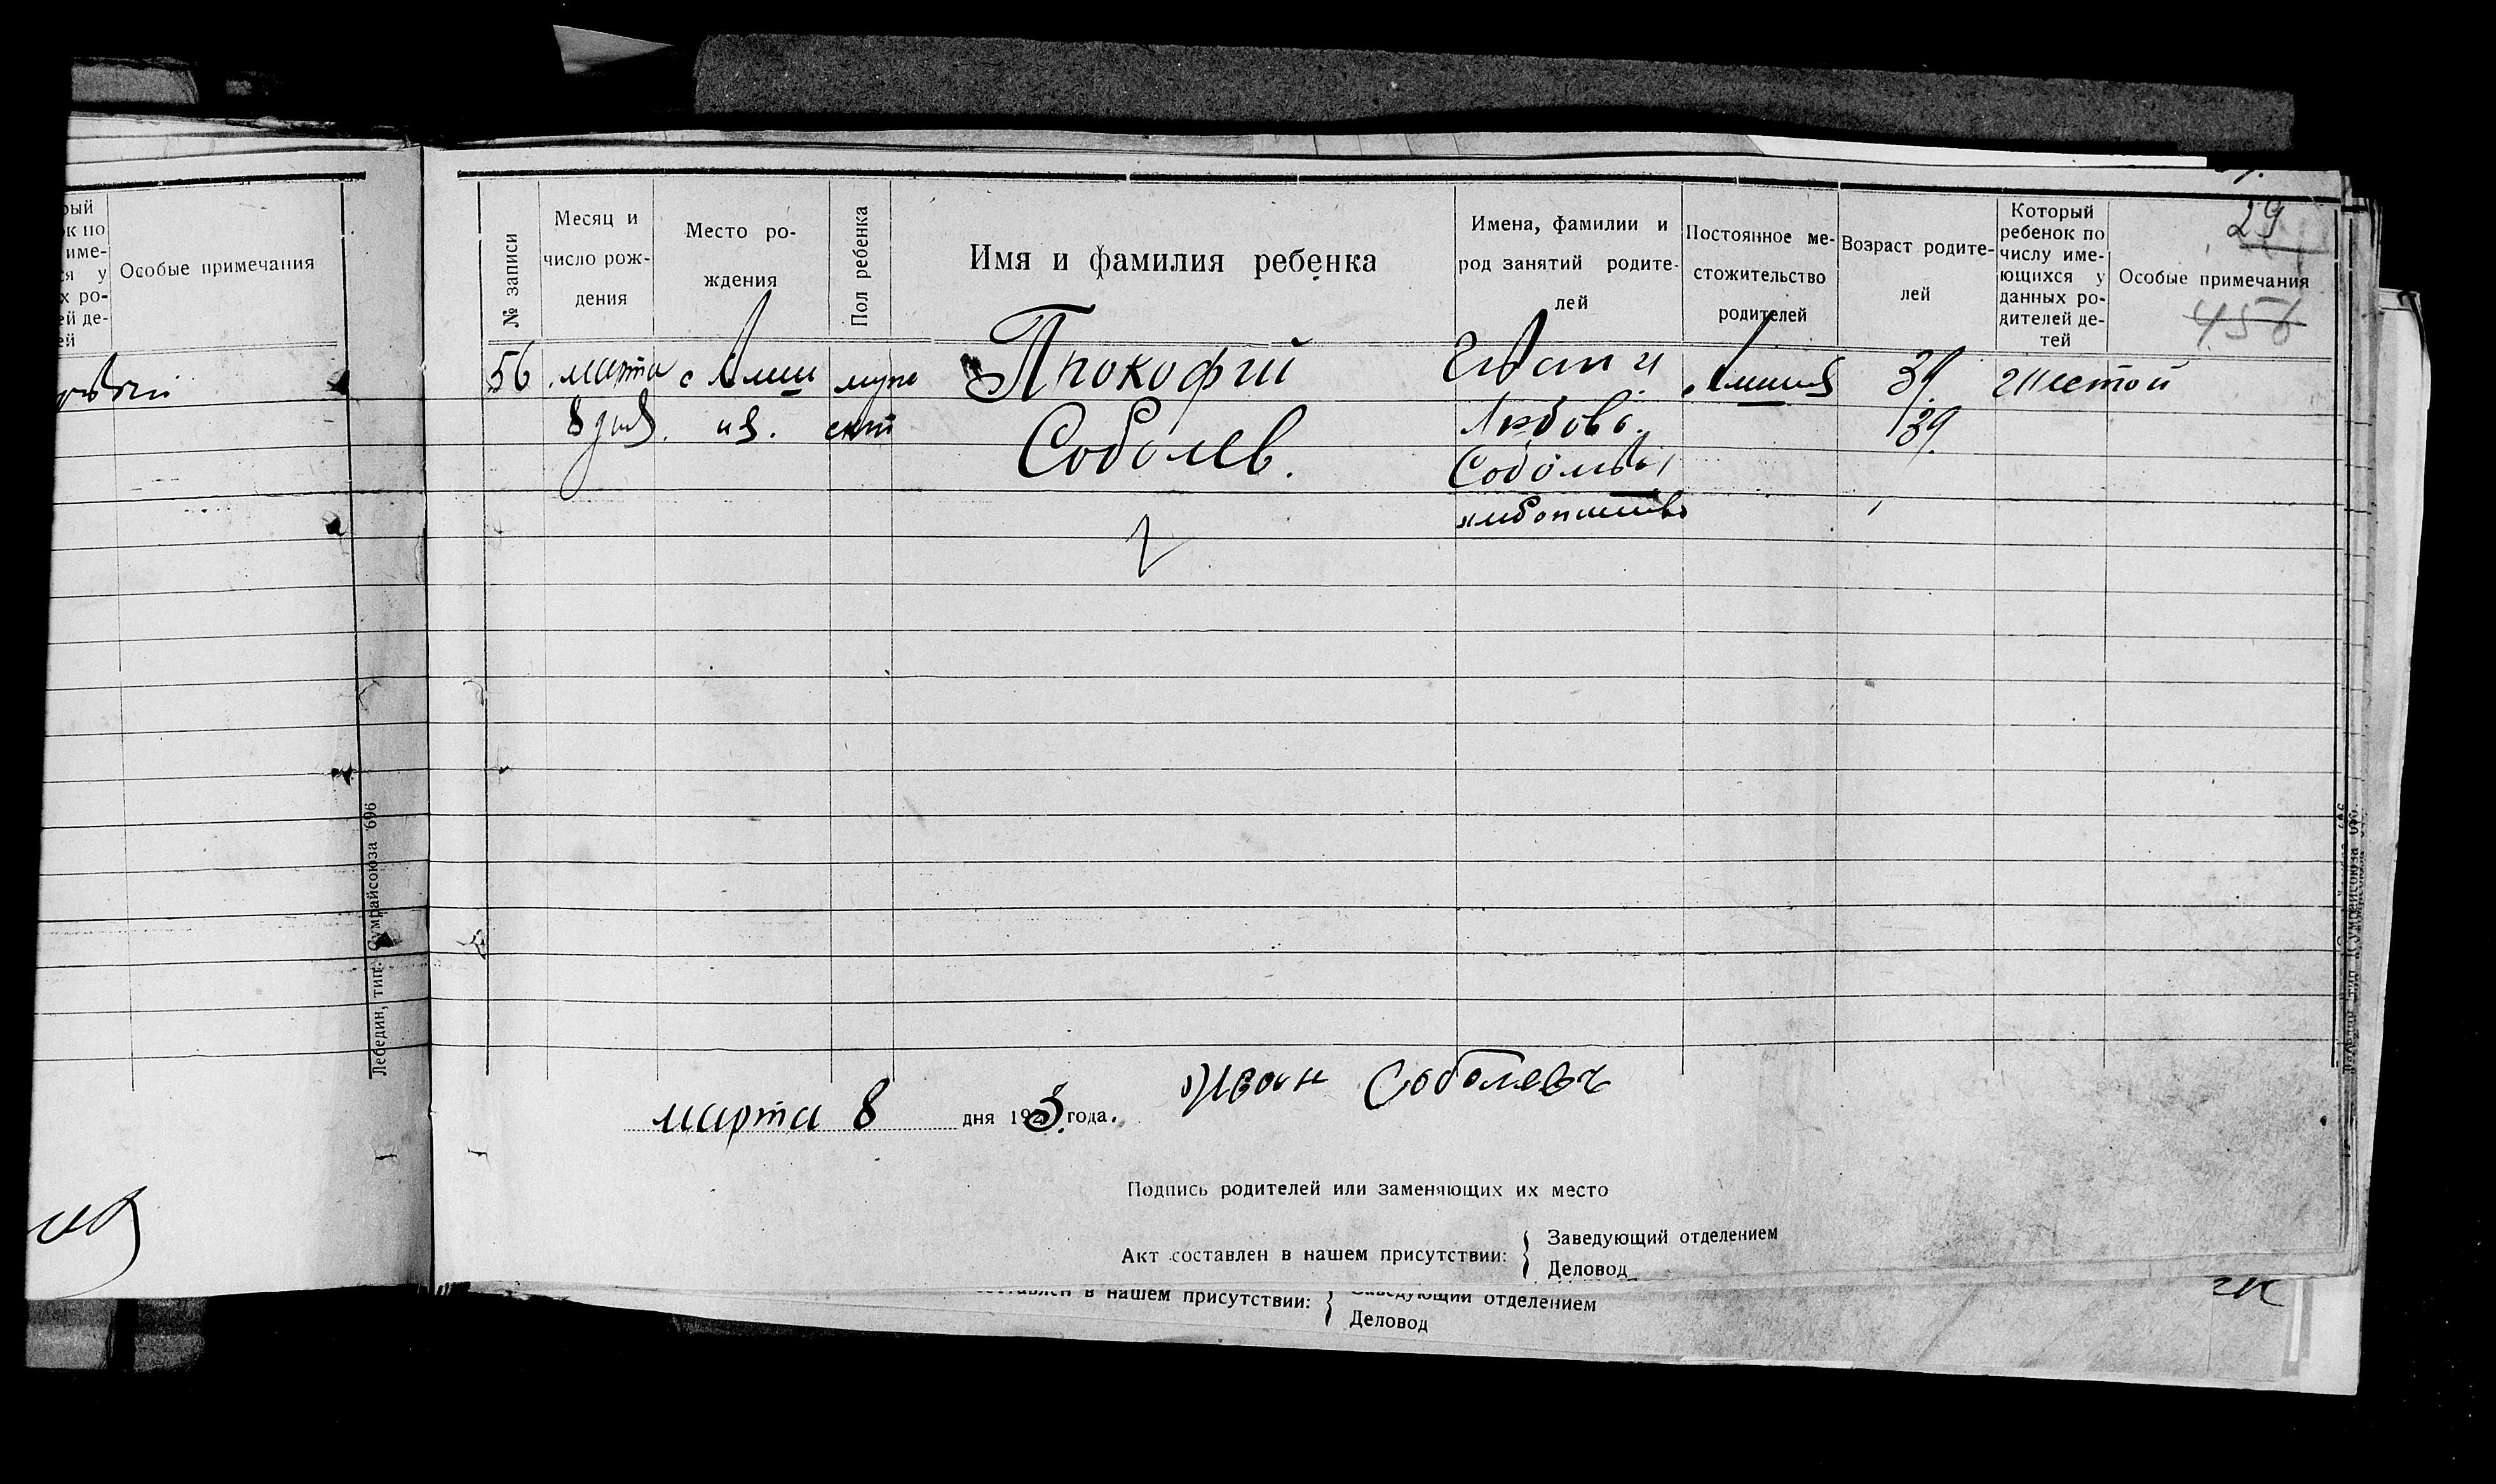 рый
ок по
име-
ся у
х ро-
ей де-
ей
Особые примечания
Лебедин, тип. Сумрайсоюза 696
29
456
№ записи
Месяц и
число рож-
дения
Место ро-
ждения
Пол ребенка
Имя и фамилия ребенка
Имена, фамилии и
род занятий родите-
лей
Постоянное ме-
стожительство
родителей
Возраст родите-
лей
Который
ребенок по
числу име-
ющихся у
данных ро-
дителей де-
тей
Особые примечания
56 марта с муж Прокофий Иван и 39 Шестой
8 дня ския Соболев. Любовь 39.
Соболевы
марта 8 дня 1923 года.
Иван Соболевъ
Подпись родителей или заменяющих их место
Акт составлен в нашем присутствии:
Заведующий отделением
Деловод
в нашем присутствии:
Заведующий отделением
Деловод